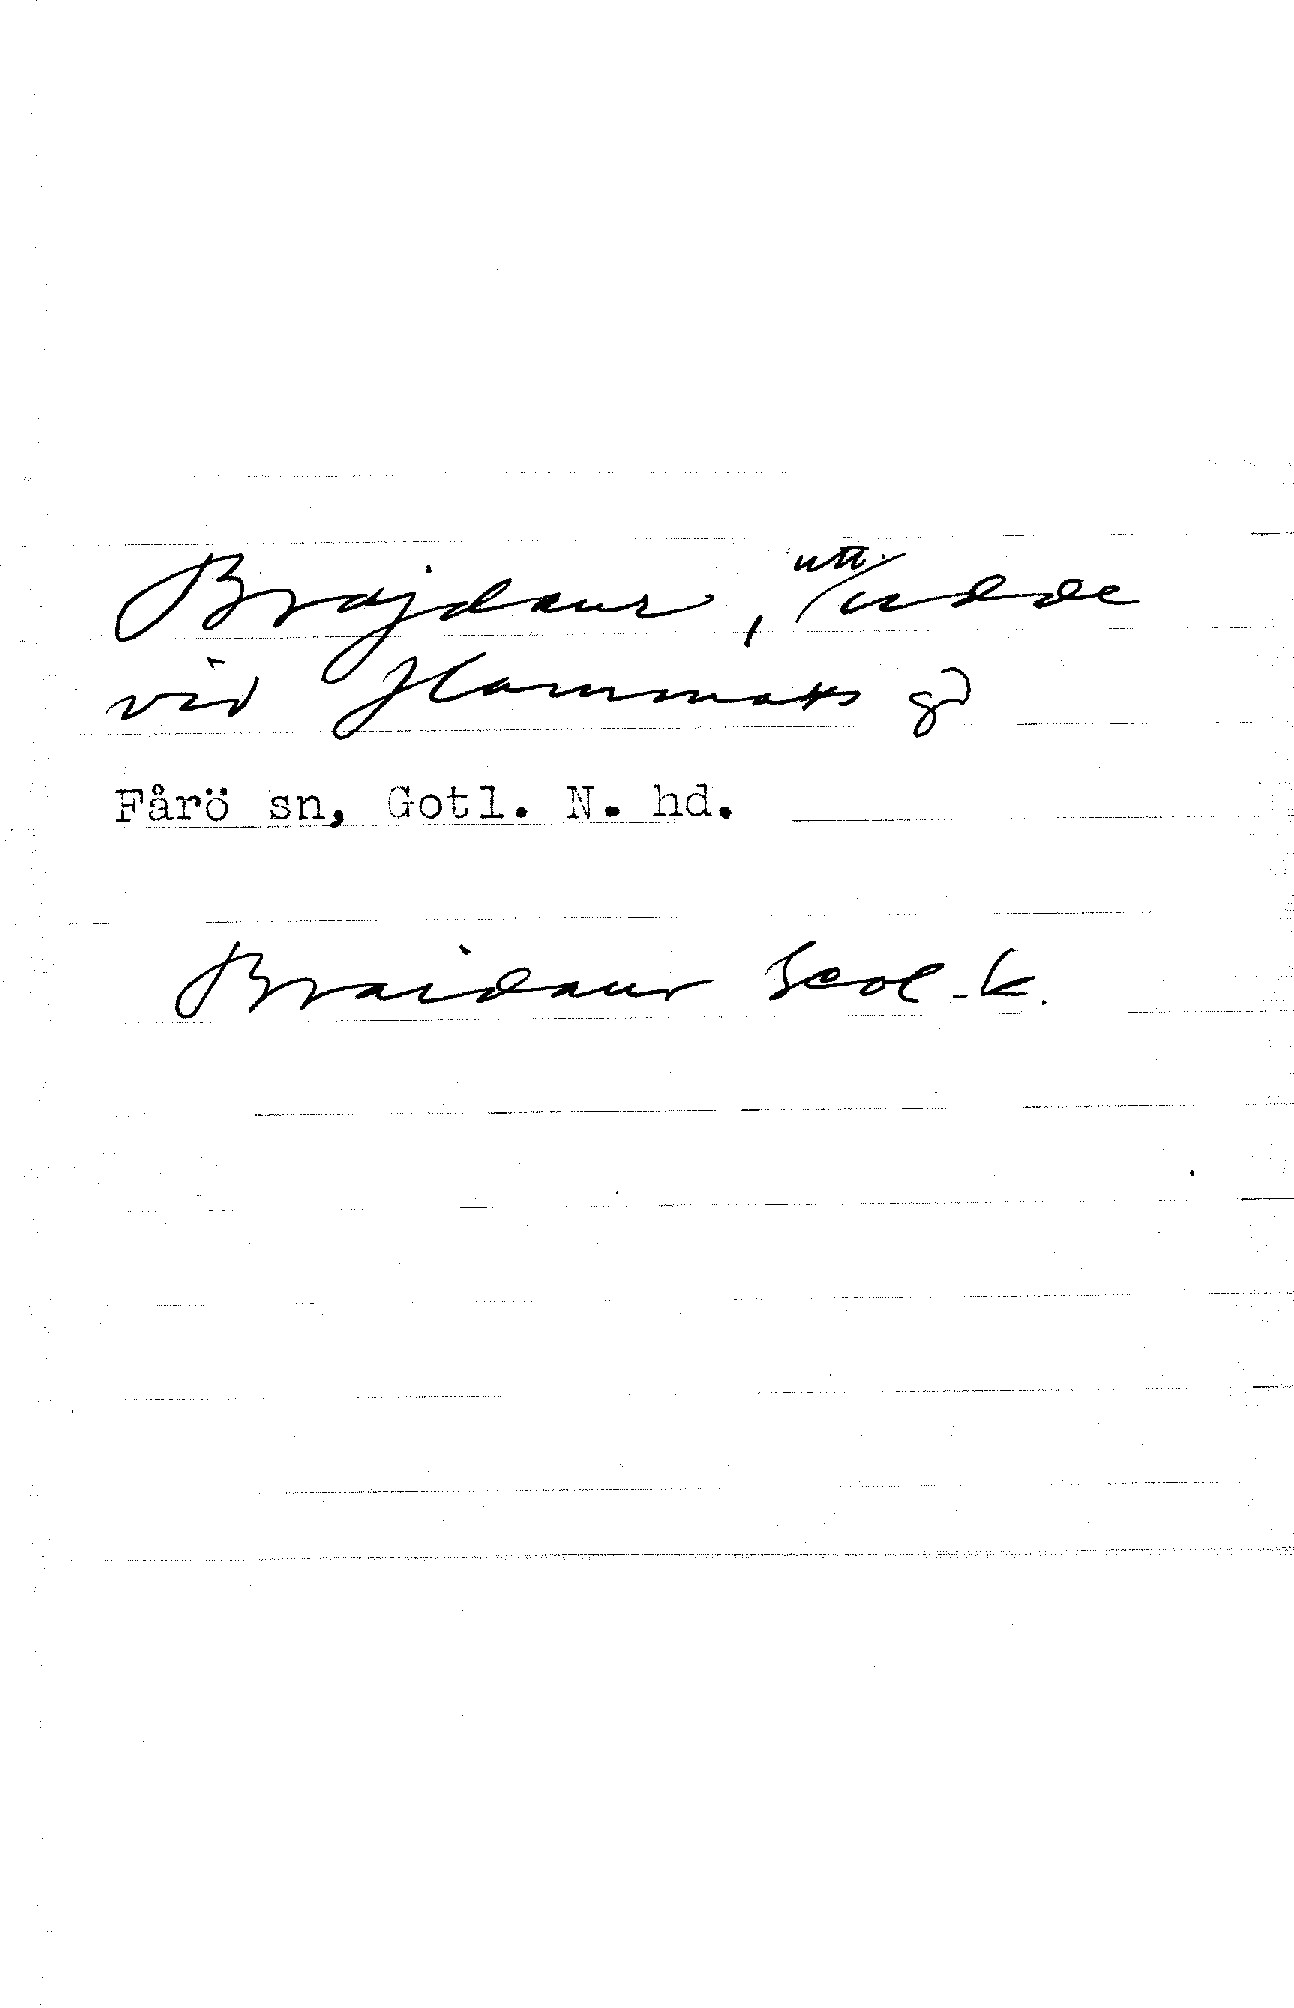 Brajdaur, utt. / udde
vid Hammars gd
Fårö sn, Gotl. N. hd.
Braidaur Geol. k.